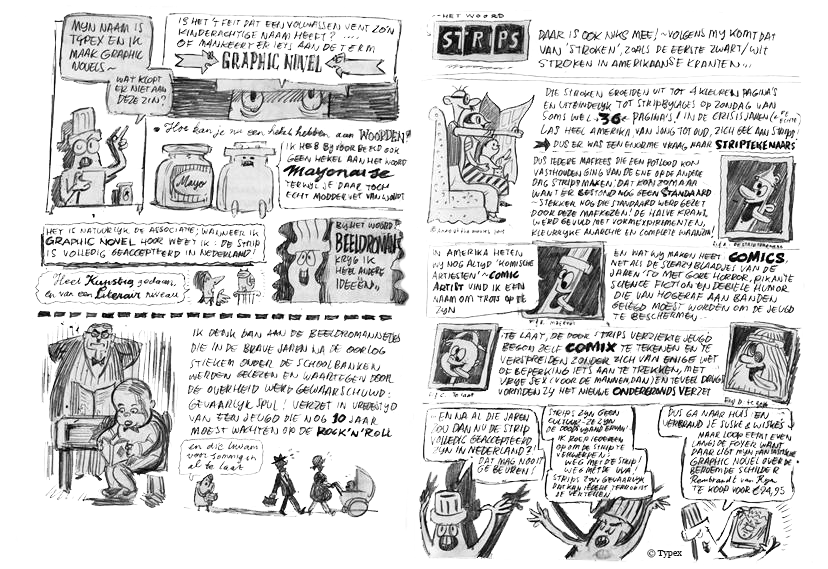 MYN NAAM IS
TYPEX EN IK
MAAK GRAPHIC
NOVELS~
WAT KLOPT
ER NIET AAN
DEZE ZIN?
IS HET 'T FEIT DAT EEN VOLWASSEN VENT ZO'N
KINDERACHTIGE NAAM HEEFT? ....
OF MANKEERT ER IETS AAN DE TERM
GRAPHIC NOVEL
Hoe kan je nu een hekel hebben aan WOORDEN?
IK HEB BYVOORBEELD OOK
GEEN HEKEL AAN HET WOORD
Mayonaise
TERWYL JE DAAR TOCH
ECHT MODDERVET VAN WORDT
Mayo
HET IS NATUURLYK DE ASSOCIATIE; WANNEER IK
GRAPHIC NOVEL HOOR WEET IK: DE STRIP
IS VOLLEDIG GEACCEPTEERD IN NEDERLAND!
Heel Kunstig gedaan,
en van een Literair niveau
BY HET WOORD
BEELDROMAN
KRYG IK
HEEL ANDERE
IDEEËN
IK DENK DAN AAN DE BEELDROMANNETJES
DIE IN DE BRAVE JAREN NA DE OORLOG
STIEKEM ONDER DE SCHOOLBANKEN
WERDEN GELEZEN EN WAARTEGEN DOOR
DE OVERHEID WERD GEWAARSCHUWD:
GEVAARLYK SPUL! VERZET IN VREDESTYD
VAN EEN JEUGD DIE NOG 10 JAAR
MOEST WACHTEN OP DE ROCK'N'ROLL
en die kwam
voor sommigen
al te laat
HET WOORD
STRIPS
DAAR IS OOK NIKS MEE! ~ VOLGENS MY KOMT DAT
VAN 'STROKEN', ZOALS DE EERSTE ZWART/WIT
STROKEN IN AMERIKAANSE KRANTEN...
DIE STROKEN GROEIDEN UIT TOT 4 KLEUREN PAGINA'S
EN UITEINDELYK TOT STRIPBYLAGES OP ZONDAG VAN
SOMS WEL 36 PAGINA'S! IN DE CRISISJAREN
LAS HEEL AMERIKA VAN JONG TOT OUD, ZICH GEK AAN STRIPS!
DUS ER WAS EEN ENORME VRAAG NAAR STRIPTEKENAARS
DUS IEDERE MAFKEES DIE EEN POTLOOD KON
VASTHOUDEN GING VAN DE ENE OP DE ANDERE
DAG STRIP MAKEN. DAT KON ZOMAAR
WANT ER BESTOND NOG GEEN STANDAARD
~STERKER NOG DIE STANDAARD WERD GEZET
DOOR DEZE MAFKEZEN! DE HALVE KRANT
WERD GEVULD MET VORMEXPERIMENTEN,
KLEURRYKE ANARCHIE EN COMPLETE WAANZIN!
IN AMERIKA HETEN
WY NOG ALTYD 'KOMISCHE
ARTIESTEN' ~ COMIC
ARTIST VIND IK EEN
NAAM OM TROTS OP TE
ZYN
EN WAT WY MAKEN HEET COMICS,
NET ALS DE SLEAZY BLAADJES VAN DE
JAREN '50 MET GORE HORROR, PIKANTE
SCIENCE FICTION EN DEBIELE HUMOR
DIE VAN HOGERAF AAN BANDEN
GELEGD MOEST WORDEN OM DE JEUGD
TE BESCHERMEN~
TE LAAT, DE DOOR STRIPS VERZIEKTE JEUGD
BEGON ZELF COMIX TE TEKENEN EN TE
VERSPREIDEN ZONDER ZICH VAN ENIGE WET
OF BEPERKING IETS AAN TE TREKKEN, MET
VRYE SEX (VOOR DE MANNEN DAN) EN TEVEEL DRUGS
VORMDEN ZY HET NIEUWE ONDERGRONDS VERZET
... EN NA AL DIE JAREN
ZOU DAN NU DE STRIP
VOLLEDIG GEACCEPTEERD
ZYN IN NEDERLAND?!
DAT MAG NOOIT
GEBEUREN!
STRIPS ZYN GEEN
CULTUUR~ ZE ZYN
IK ROEP IEDEREEN
OP OM DE STRIP TE
VERWERPEN:
WEG MET DE STRIP!
STRIPS ZYN GEVAARLYK
DUS GA NAAR HUIS EN
VERBRAND JE SUSKE & WISKES
MAAR LOOP EERST EVEN
LANGS DE FOYER WANT
DAAR LIGT MYN FANTASTISCHE
GRAPHIC NOVEL OVER DE
BEROEMDE SCHILDER
Rembrandt van Ryn
TE KOOP VOOR €24,95
© Typex